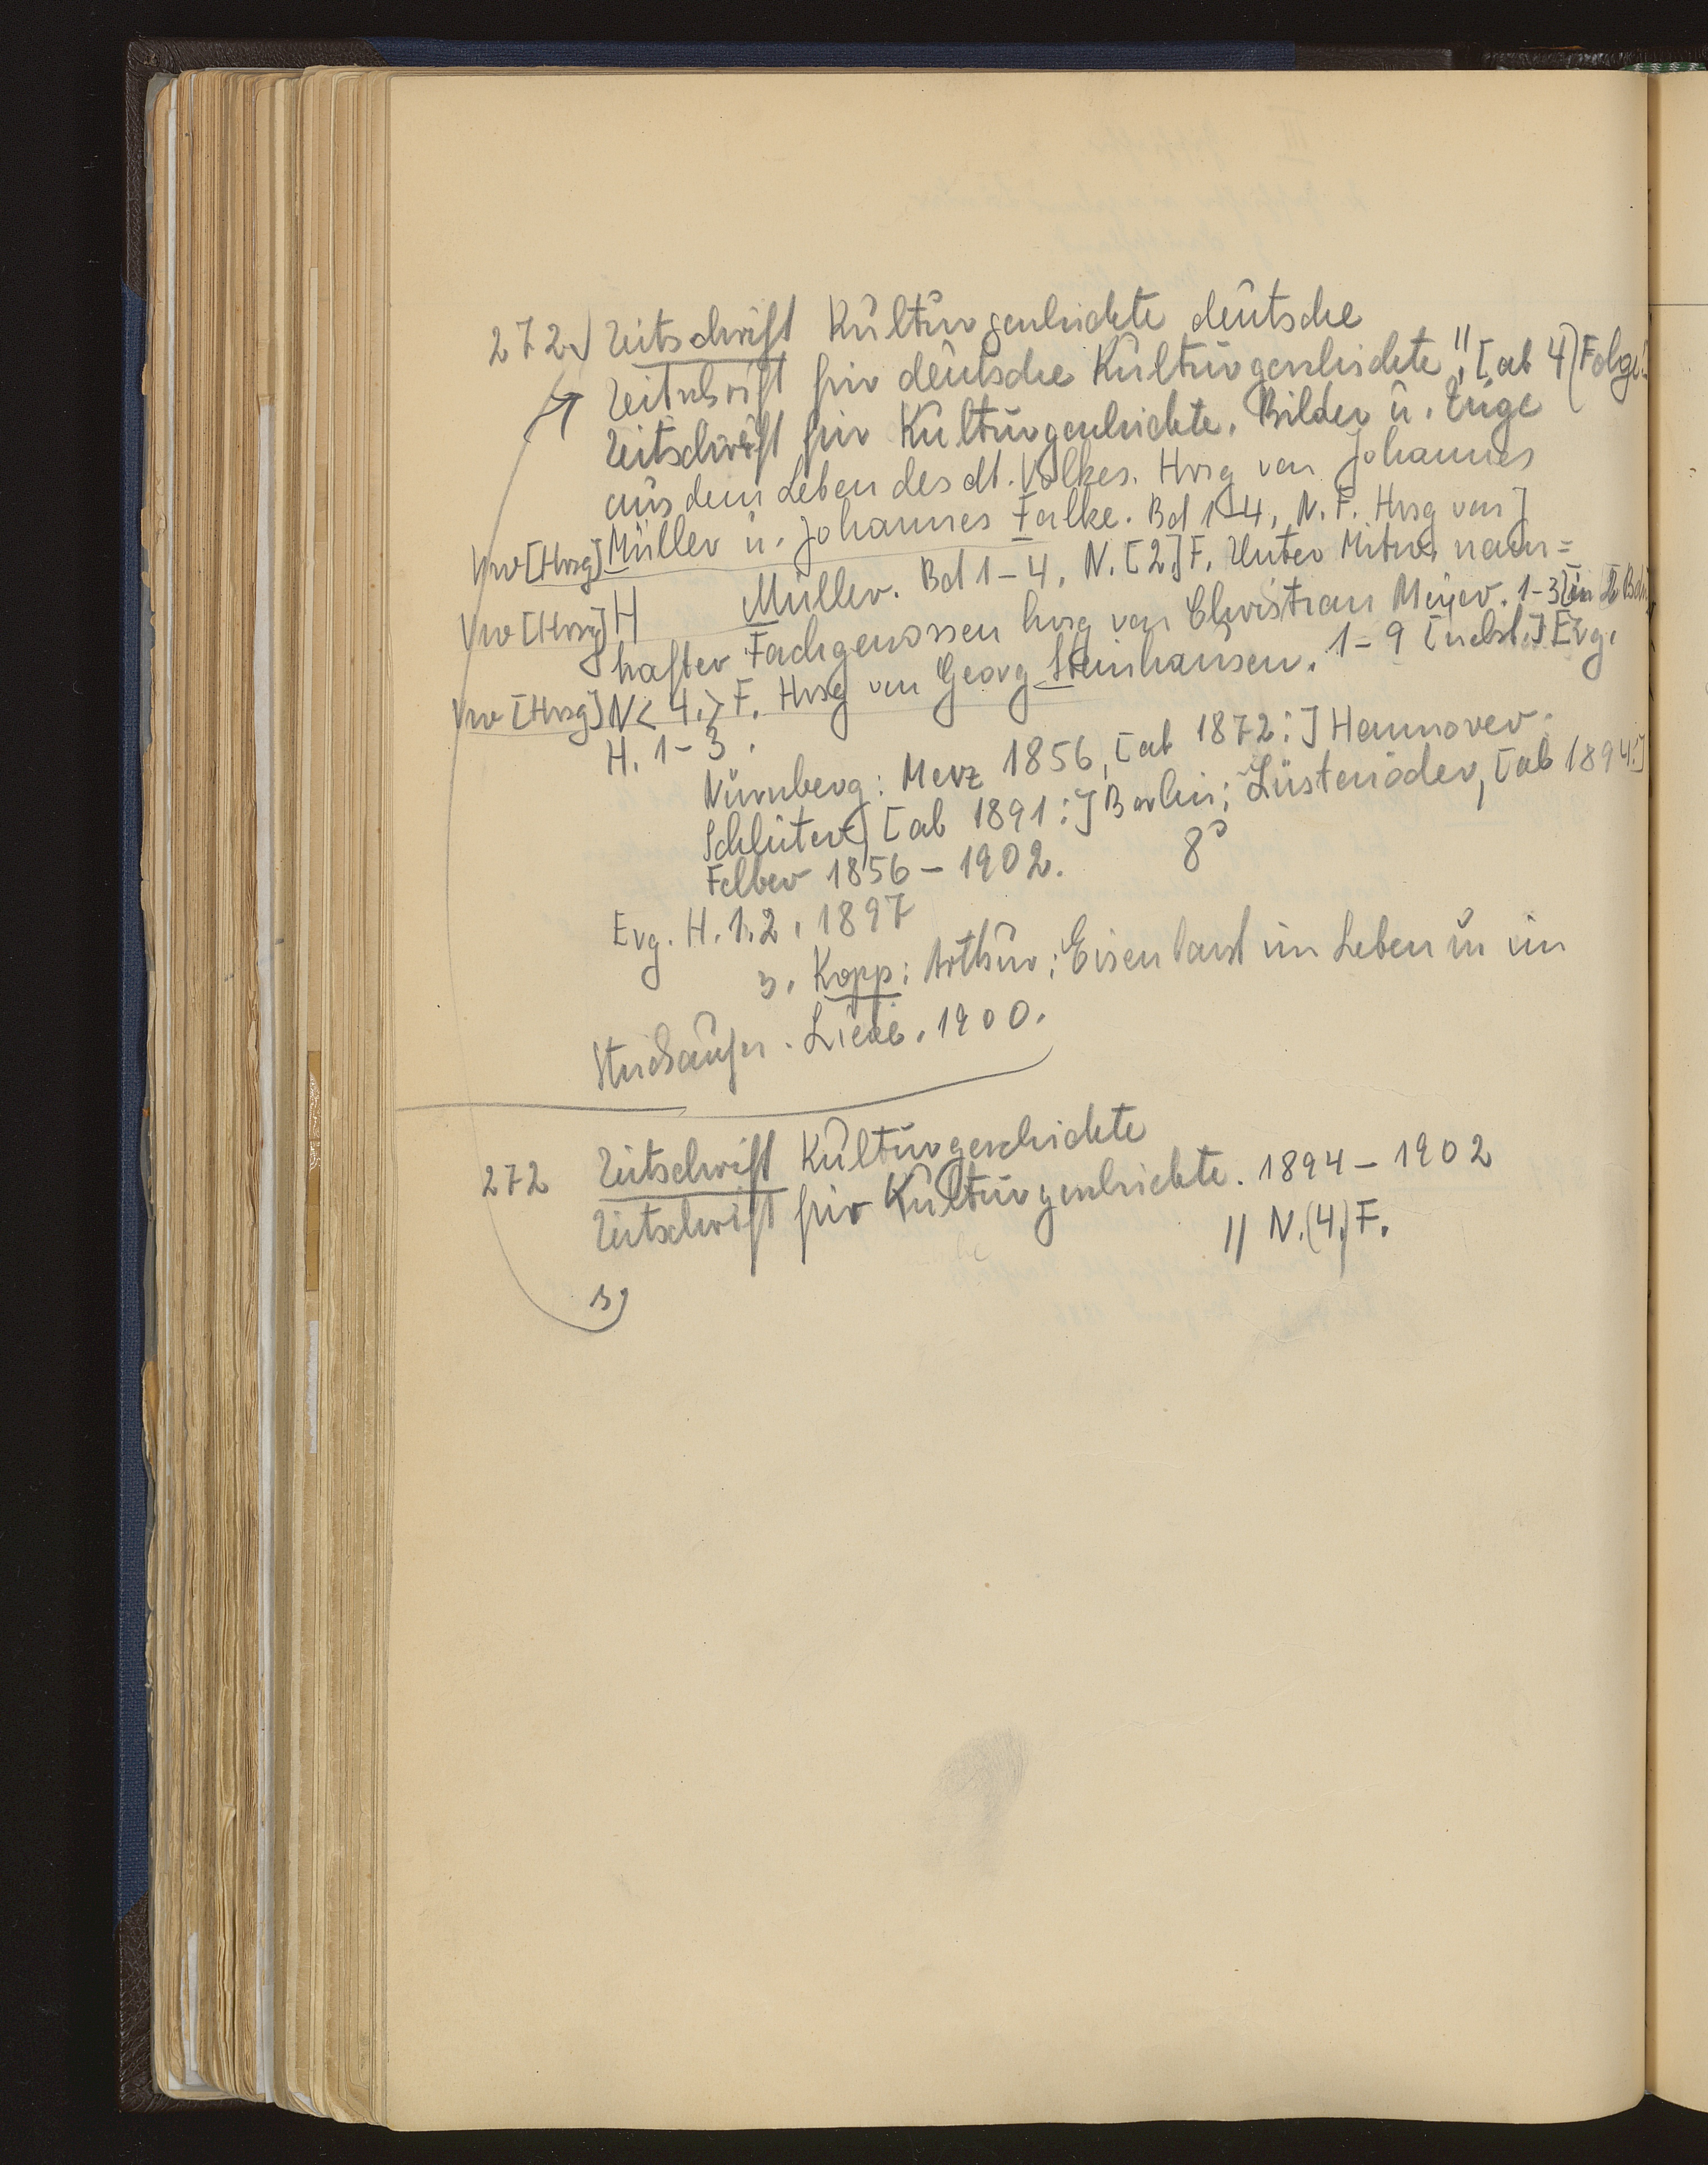 272) Zeitschrift Kulturgeschichte deutsche
Zeitschrift für deutsche Kulturgeschichte", [ab 4) Folge:
Zeitschrift für Kulturgeschichte. Bilder u. Züge
aus dem Leben des dt. Volkes. Hrsg von Johannes
Vw [Hrsg] Müller u. Johannes Falke. Bd 1-4, N. F. Hrsg von J
Vw [Hrsg] H Müller. Bd 1-4, N. [2] F. Unter Mitw. nam=
hafter Fachgenossen hrsg von Christian Meyer. 1-3 [in 2 Bdn]
Vw [Hrsg] N< 4.> F. Hrsg von Georg Steinhausen. 1-9 [nebst] Erg.
H. 1-3.
Nürnberg: Merz 1856, [ab 1872:] Hannover:
Schlüter, [ab 1891:] Berlin: Lüstenöder, [ab 1894:]
Felber 1856-1902. 8°
Erg. H. 1.2, 1897
3. Kopp: Arthur: Eisenbart im Leben u im
1900.
272 Zeitschrift Kulturgeschichte
Zeitschrift für Kulturgeschichte. 1894-1902
// N.(4.) F.